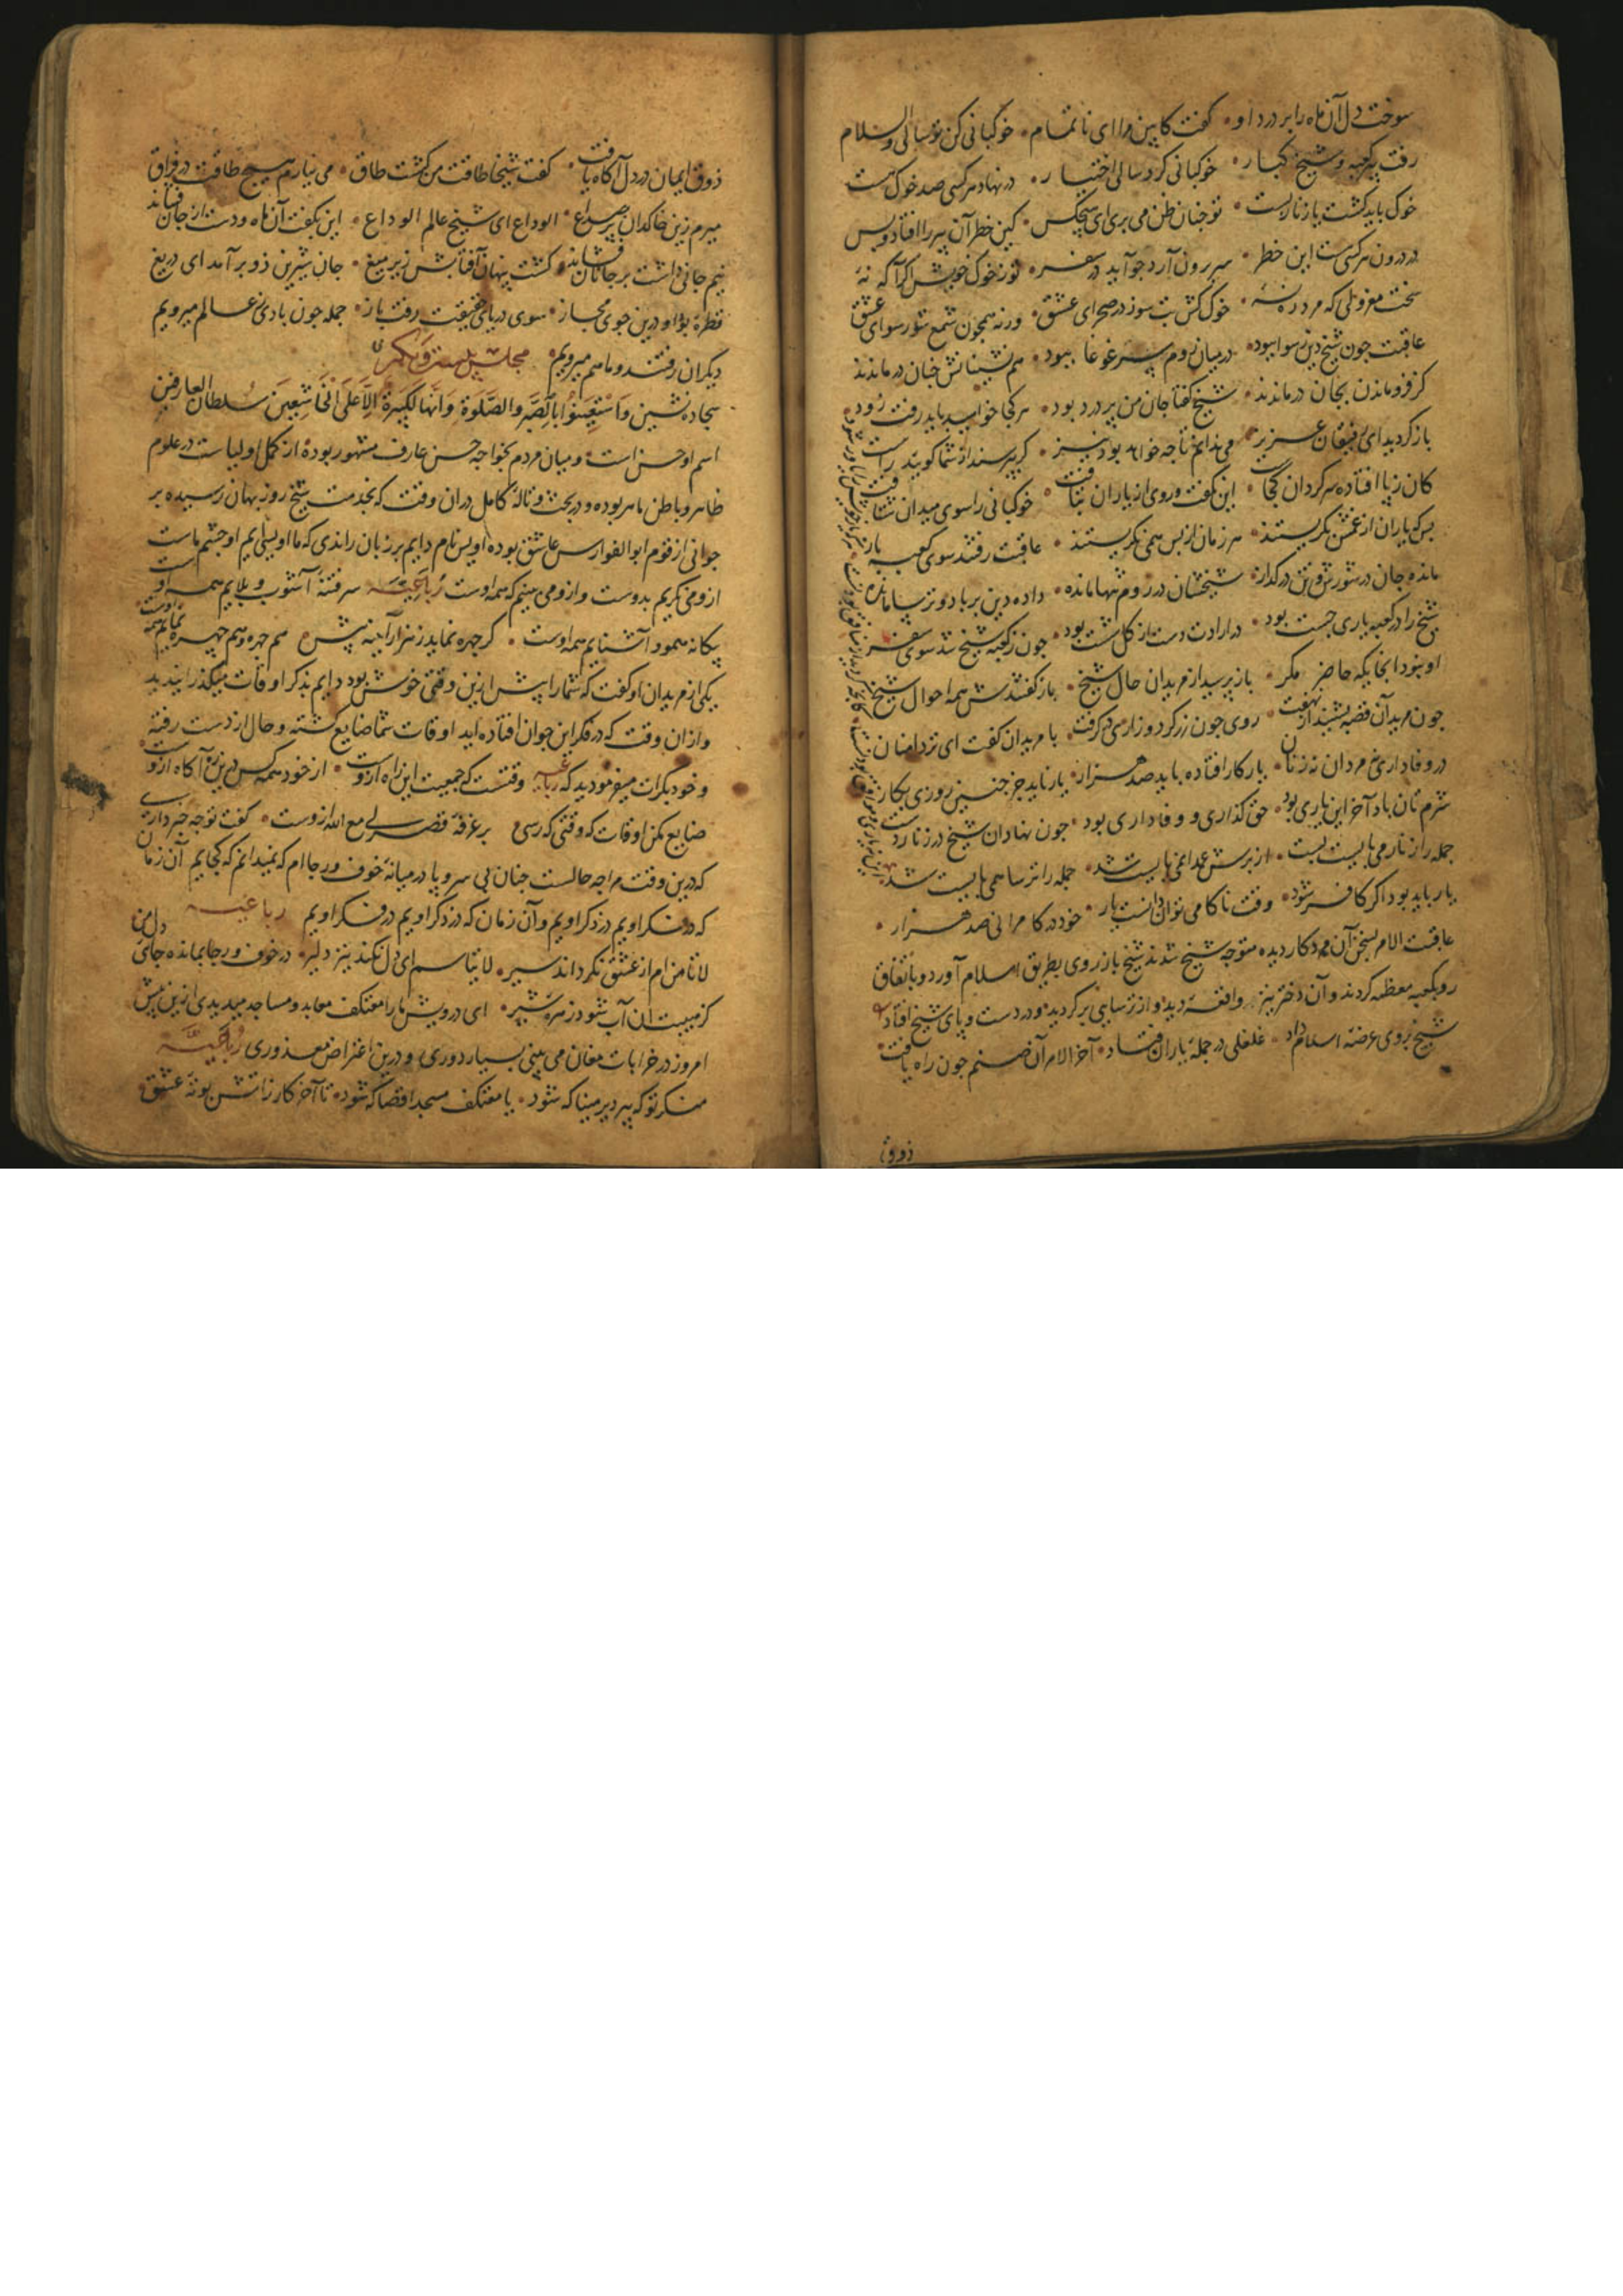 سوخت دل آن ماه را بر درد او • گفت کابین مرا ای ناتمام • خوکبانی کن تو سالی والسلام
رفت پیر کعبه و شیخ کبار • خوکبانی کرد سالی اختیار • در نهاد هر کسی صد خوک هست
خوک باید کشت یا زنار بست • تو چنان ظن می بری ای هیچکس • کین خطر آن پیر را افتاد و بس
در درون هر کسی هست این خطر • سر برون آرد چو آید در سفر • تو ز خوک خویش اگر آگه نه
سخت معزولی که مرد ره نه • خوک کش بت سوز در صحرای عشق • ورنه همچون شیخ شو رسوای عشق
عاقبت چون شیخ دین رسوا ببود • در میان روم پر غوغا ببود • هم نشینانش چنان درماندند
کز فرو ماندن بجان درماندند • شیخ گفتا جان من پر درد بود • هر کجا خواهید باید رفت زود
باز گردید ای رفیقان عزیز • می ندانم تا چه خواهد بود نیز • گر بپرسند از شما گویید راست
کان ز پا افتاده سرگردان کجاست • این بگفت و روی از یاران بتافت • خوکبانی را سوی میدان شتافت
بس که یاران از غمش بگریستند • هر زمان از پس همی نگریستند • عاقبت رفتند سوی کعبه باز
مانده جان در سوزش و تن در گداز • شیخشان در روم تنها مانده • داده دین بر باد و ترسا مانده
شیخ را در کعبه یاری چست بود • در ارادت دست از کل شست بود • چون ز کعبه شیخ شد سوی سفر
او نبود آنجایگه حاضر مگر • باز پرسید از مریدان حال شیخ • باز گفتندش همه احوال شیخ
چون مرید آن قصه بشنید از شگفت • روی چون زر کرد و زاری در گرفت • با مریدان گفت ای تر دامنان
در وفاداری نه مردان نه زنان • یار کار افتاده باید صد هزار • یار ناید جز چنین روزی بکار
شرم تان باد آخر این یاری بود • حق گذاری و وفاداری بود • چون نهاد آن شیخ در زنار دست
جمله را زنار می بایست بست • از برش عمدا نمی بایست شد • جمله را ترسا همی بایست شد
یار باید بود اگر کافر شود • وقت ناکامی توان دانست یار • خود در کامرانی صد هزار •
عاقبت الامر بسخن آن مرد کار دیده متوجه شیخ شدند شیخ باز روی بطریق اسلام آورد و باتفاق
رو بکعبه معظمه کردند و آن دختر نیز واقعه دید و از ترسایی بر گردید و در دست و پای شیخ افتاد
شیخ بروی عرضه اسلام داد • غلغلی در جمله یاران فتاد • آخر الامر آن صنم چون راه یافت •
ذوق
ذوق ایمان در دل آگاه یافت • گفت شیخا طاقت من گشت طاق • می نیارم هیچ طاقت در فراق
میرم زین خاکدان پر صداع • الوداع ای شیخ عالم الوداع • این بگفت آن ماه و دست از جان فشاند
نیم جانی داشت بر جانان فشاند • گشت پنهان آفتابش زیر میغ • جان شیرین زو بر آمد ای دریغ
قطره بود او درین جوی مجاز • سوی دریای حقیقت رفت باز • جمله چون بادی ز عالم میرویم
دیگران رفتند و ما هم میرویم • مجلس بیست و یکم
سجاده نشین وَاسْتَعِينُوا بِالصَّبْرِ وَالصَّلَوةِ وَاِنَّهَا لَكَبِيرَةٌ اِلَّا عَلَى الْخَاشِعِينَ سلطان العارفین
اسم او حسن است و میان مردم بخواجه حسن عارف مشهور بوده از کمل اولیاست در علوم
ظاهر و باطن ماهر بوده و در بحث و ناله کامل در ان وقت که بخدمت شیخ روزبهان رسیده بر
جوانی از قوم ابوالفوارس عاشق بوده اویس نام دایم بر زبان راندی که ما اویسی ایم او چشم ماست
ازو می نگریم بدوست و ازو می بینیم که همه اوست رباعیه سر فتنه آشوب و بلاییم همه اوست
بیگانه همو و آشناییم همه اوست • گر چهره نماید ز هزار آینه بیش • هم چهره و هم چهره نماییم همه اوست
یکی از مریدان او گفت که شما را پیش ازین وقتی خوش بود دایم بذکر اوقات میگذرانیدید
و ازان وقت که در فکر این جوان افتاده اید اوقات شما ضایع گشته و حال از دست رفته
و خود بکرات میفرمودید که رباعیه وقتست که جمعیت این راه ازوست • از خود همه کس درین ره آگاه ازوست
ضایع مکن اوقات که وقتی که رسی • بر غرفه قصر لی مع الله ازوست • گفت تو چه خبر داری
که درین وقت مرا چه حالست چنان بی سر و پا در میانه خوف و رجا ام که نمیدانم که کجایم آن زمان
که در فکر اویم در ذکر اویم و آن زمان که در ذکر اویم در فکر اویم رباعیه
لا تامن ام از عشق نگرداند سیر • لا تیاسم ای دل نکند نیز دلیر • در خوف و رجا بمانده جای
کز هیبت ان آب شود زهره شیر • ای درویش ما را معتکف معابد و مساجد میدیدی ازین پیش
امروز در خرابات مغان می بینی بسیار دوری و درین اعتراض معذوری رباعیه
منکر تو که پیر دیر مینا که شود • یا معتکف مسجد اقصا که شود • تا آخر کار ز آتش بوته عشق •